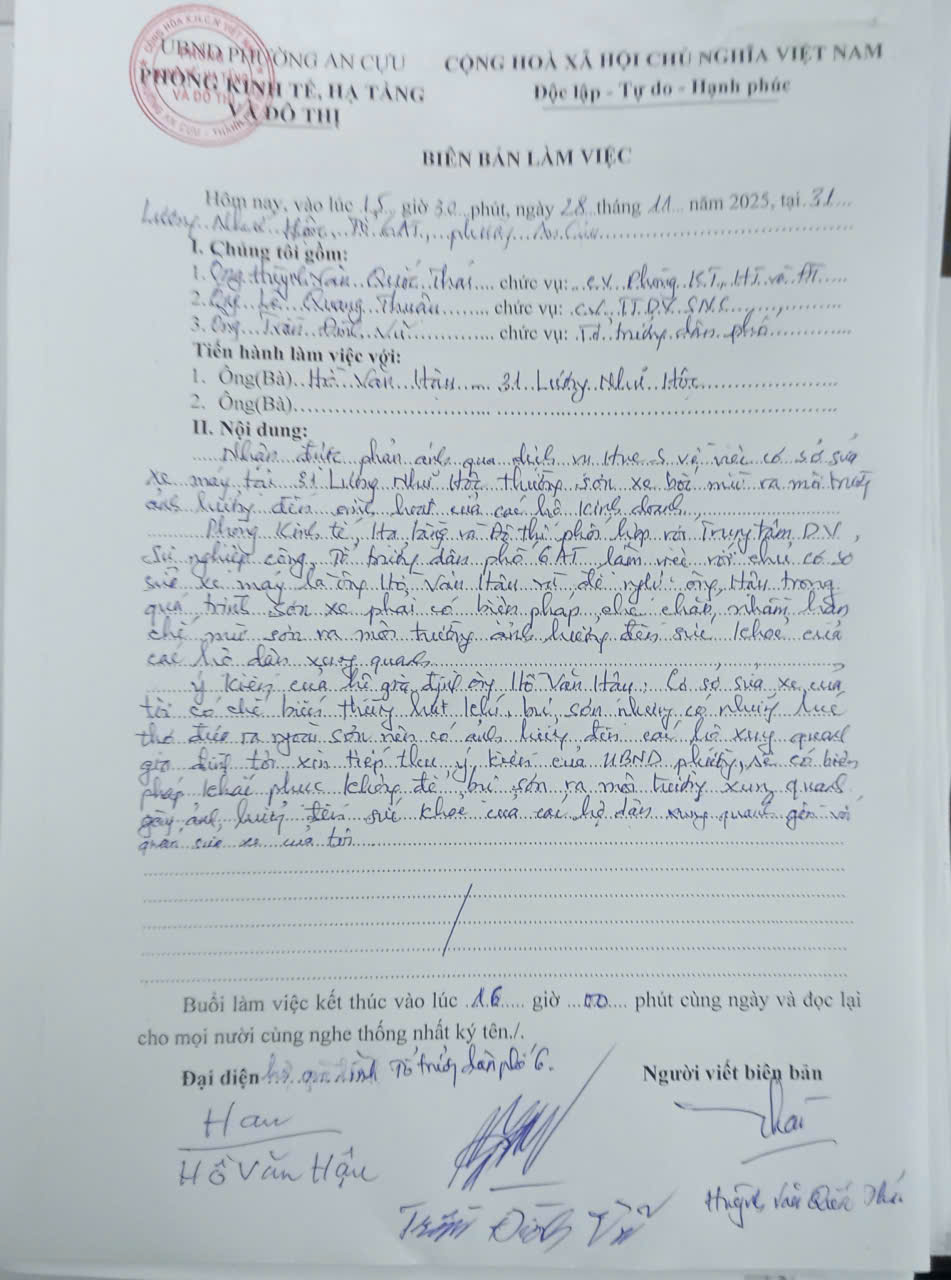 UBND PHƯỜNG AN CỰU
PHÒNG KINH TẾ, HẠ TẦNG
VÀ ĐÔ THỊ
CỘNG HOÀ XÃ HỘI CHỦ NGHĨA VIỆT NAM
Độc lập - Tự do - Hạnh phúc
BIÊN BẢN LÀM VIỆC
Hôm nay, vào lúc 15 giờ 30 phút, ngày 28 tháng 11 năm 2025, tại 31
Lương Như Hộc, Tổ 6AT, phường An Cựu
I. Chúng tôi gồm:
1. Ông Huỳnh Văn Quốc Thái chức vụ: c.v. Phòng KT, HT và ĐT
2. Ông Lê Quang Thuần chức vụ: c.v. TT.DV.SNC
3. Ông Trần Đình Vũ chức vụ: Tổ trưởng dân phố
Tiến hành làm việc với:
1. Ông(Bà) Hồ Văn Hậu 31 Lương Như Hộc
2. Ông(Bà)
II. Nội dung:
Nhận được phản ánh qua dịch vụ Hue S về việc cơ sở sửa
xe máy tại 31 Lương Như Hộc thường sơn xe bốc mùi ra môi trường
ảnh hưởng đến sinh hoạt của các hộ kinh doanh,
Phòng Kinh tế, Hạ tầng và Đô thị phối hợp với Trung tâm DV
Sự nghiệp công, Tổ trưởng dân phố 6AT làm việc với chủ cơ sở
sửa xe máy là ông Hồ Văn Hậu và đề nghị: ông Hậu trong
quá trình sơn xe phải có biện pháp che chắn, nhằm hạn
chế mùi sơn ra môi trường ảnh hưởng đến sức khoẻ của
các hộ dân xung quanh
Ý kiến của hộ gia đình ông Hồ Văn Hậu: Cơ sở sửa xe của
tôi có chế biến thùng hút khí, bụi sơn nhưng có những lúc
thợ đưa ra ngoài sơn nên có ảnh hưởng đến các hộ xung quanh
gia đình tôi xin tiếp thu ý kiến của UBND phường, sẽ có biện
pháp khắc phục không để bụi sơn ra môi trường xung quanh
gây ảnh hưởng đến sức khoẻ của các hộ dân xung quanh gần với
quán sửa xe của tôi
Buổi làm việc kết thúc vào lúc 16 giờ 00 phút cùng ngày và đọc lại
cho mọi nười cùng nghe thống nhất ký tên./.
Đại diện hộ gia đình Tổ trưởng dân phố 6. Người viết biên bản
Hau
Hồ Văn Hậu
Trần Đình Vũ
Thái
Huỳnh Văn Quốc Thái